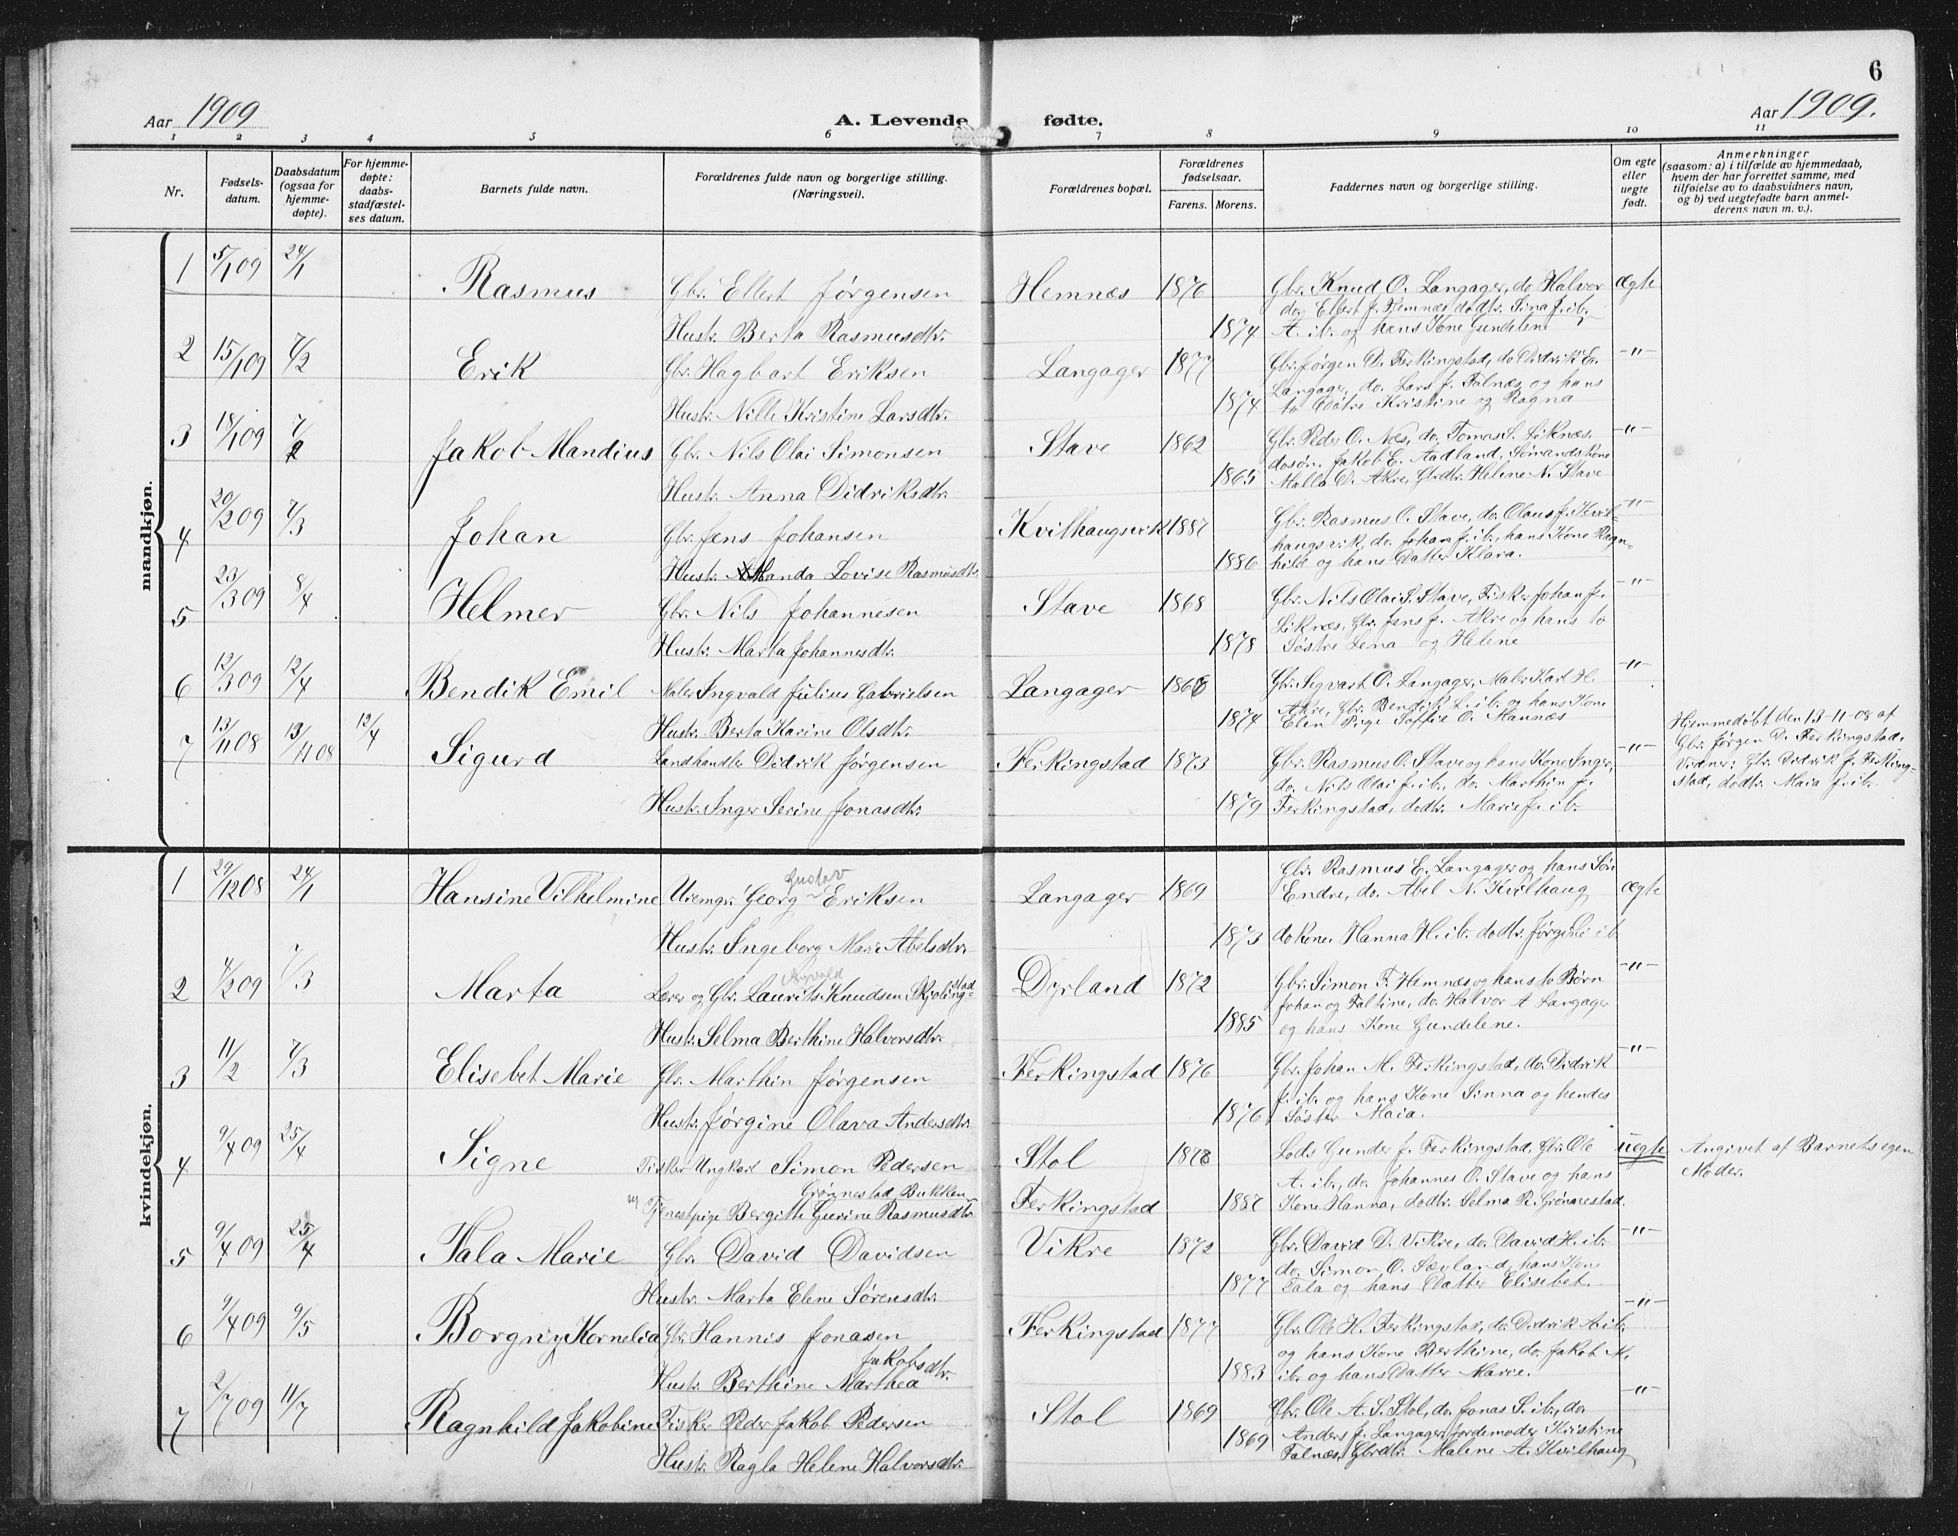 6
Aar 1909 A. Levende fødte. Aar 1909.
1 2 3 4 5 6 7 8 9 10 11
Nr.
Fødsels-
datum.
Daabsdatum
(ogsaa for
hjemme-
døpte).
For hjemme-
døpte:
daabs-
stadfæstel-
ses datum.
Barnets fulde navn.
Forældrenes fulde navn og borgerlige stilling.
(Næringsvei).
Forældrenes bopæl.
Forældrenes
fødselsaar.
Farens. Morens.
Faddernes navn og borgerlige stilling.
Om egte
eller
uegte
født.
Anmerkninger
(saasom: a) i tilfælde av hjemmedaab,
hvem der har forrettet samme, med
tilføielse av to daabsvidners navn,
og b) ved uegtefødte barn anmel-
derens navn m. v.).
mandkjøn.
1 5/1 09 24/1 Rasmus Gbr. Ellert Jørgensen Hemnæs 1876 Gbr. Knud O. Langager, do Halvor ægte
do, Ellert J. Hemnæs dodtr. Sina J. ib.
Hustr. Berta Rasmusdtr. 1874 A. ib. og hans Kone Gundelene
2 15/1 09 7/2 Erik Gbr. Hagbart Eriksen Langager 1877 Gbr. Jørgen D. Ferkingstad, do Didrik E. -"-
Langager, do. Lars J. Falnæs og hans
Hustr. Nille Kristine Larsdtr. 1874 to Døtre Kristine og Ragna
3 18/1 09 7/2 Jakob Mandius Gbr. Nils Olai Simonsen Stave 1862 Gbr. Peder O. Næs, do. Tomas S. Liknæs. -"-
dosøn. Jakob E. Aadland, Sømandskone
Hustr. Anna Didriksdtr. 1865 Malla D. Akre, Gbrdtr. Helene N. Stave
4 20/2 09 7/3 Johan Gbr. Jens Johansen Kvilhaugsvik 1887 Gbr. Rasmus O. Stave, do. Olaus J. Kvil- -"-
haugsvik, do. Johan J. ib., hans Kone Ragn-
Hustr. Amanda Lovise Rasmusdtr. 1886 hild og hans Datter Klara.
5 23/3 09 8/4 Helmer Gbr. Nils Johannesen Stave 1868 Gbr. Nils Olai S. Stave, Fisker Johan J. -"-
Liknæs, Gbr. Jens J. Akre og hans to
Hustr. Marta Johannesdtr. 1878 Søstre Lena og Helene
6 12/3 09 12/4 Bendik Emil Maler Ingvald Julius Gabrielsen Langager 1868 Gbr. Sigvart O. Langager, Maler Karl H. -"-
Akre, Gbr. Bendik L. ib. og hans Kone
Hustr. Berta Karine Olsdtr. 1874 Elen Pige Soffie O. Mannæs
7 13/11 08 13/11 08 12/4 Sigurd Landhandler Didrik Jørgensen Ferkingstad 1873 Gbr. Rasmus O. Stave og hans Kone Inger, -"-
do. Nils Olai J. ib., do. Marthin J.
Hustr. Inger Serine Jonasdtr. 1879 Ferkingstad, dodtr. Marie J. ib.
Hjemmedøbt den 13-11-08 af
Gbr. Jørgen D. Ferkingstad.
Vidner: Gbr. Didrik J. Ferking-
stad, dodtr. Maia J. ib.
kvindekjøn.
1 29/12 08 24/1 Hansine Vilhelmine Uremgr. Georg Gustav Eriksen Langager 1869 Gbr. Rasmus E. Langager og hans Søn
Endre, do. Abel N. Kvilhaug ægte
Hustr. Ingeborg Marie Abelsdtr. 1873 dokone. Hanna H. ib. dodtr. Jørgine ib.
2 4/2 09 7/3 Marta Lærer og Gbr. Laurits Knudsen Skjølingstad Dyrland 1872 Gbr. Simon F. Hemnæs og hans to Børn -"-
Johan og Faltine, do. Halvor A Langager
Hustr. Selma Berthine Halvorsdtr. 1885 og hans Kone Gundelene.
3 11/2 7/3 Elisebet Marie Gbr. Marthin Jørgensen Ferkingstad 1876 Gbr. Johan M. Ferkingstad, do. Didrik -"-
J. ib. og hans Kone Sinna og hendes
Hustr. Jørgine Olava Andersdtr. 1876 Søster Maia.
4 9/4 09 25/4 Signe Fisker Ungkarl Simon Pedersen Stol 1878 Lods Gunder J. Ferkingstad, Gbr. Ole uegte Angivet af Barnets egen
Grønnestad, Bukken A. ib., do. Johannes O. Stave og hans Moder.
og Tjenestepige Bergitte Gurine Rasmusdtr. Ferkingstad 1887 Kone Hanna, dodtr. Selma R. Grønnestad.
5 9/4 09 25/4 Tala Marie Gbr. David Davidsen Vikre 1872 Gbr. David D. Vikre, do. David H. ib. -"-
do. Simon O. Sævland, hans Kone
Hustr. Marta Elene Sørensdtr. 1877 Tala og hans Datter Elisebet.
6 9/4 09 9/5 Borgny Kornelia Gbr. Hannis Jonasen Ferkingstad 1877 Gbr. Ole H. Ferkingstad, do. Didrik A. ib. -"-
Jakobsdtr. og hans Kone Berthine, do. Jakob M.
Hustr. Berthine Marthea 1883 ib. og hans Datter Marie.
7 2/7 09 11/7 Ragnhild Jakobine Fisker Peder Jakob Pedersen Stol 1869 Gbr. Ole A. S. Stol, do. Jonas S. ib., do. -"-
Anders J. Langager, Jordemoder Kristine
Hustr. Ragla Helene Halvorsdtr. 1869 Falnæs, Gbrdtr. Malene A. Kvilhaug